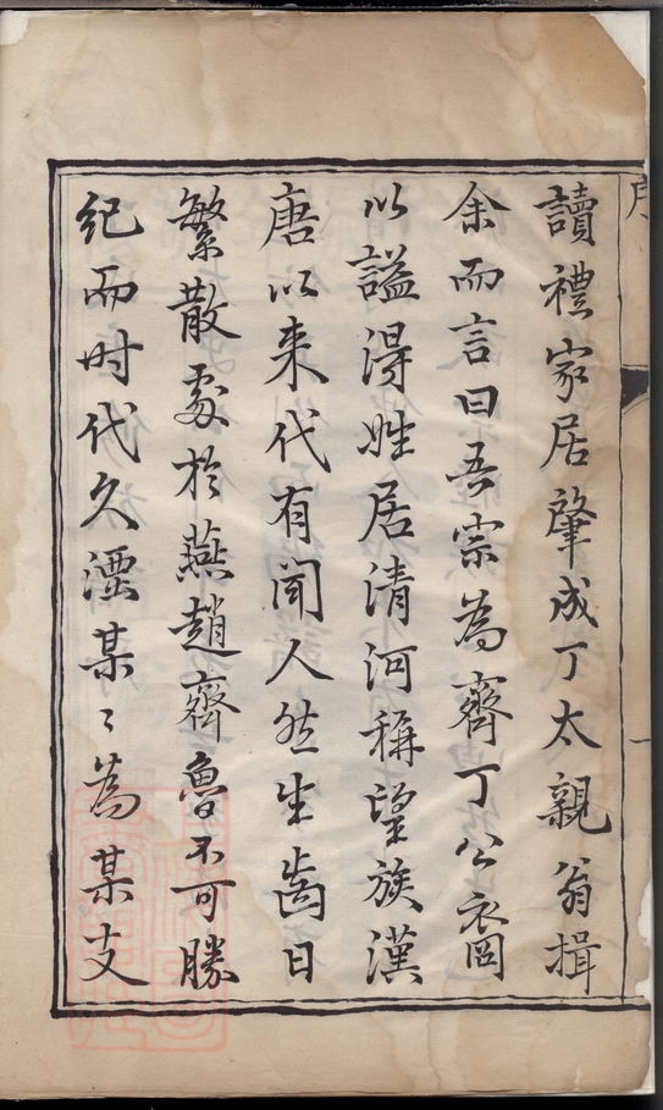 讀禮家居肇成丁太親翁揖
余而言曰吾宗為齊丁公裔
以謚淂姓居清河稱望族漢
唐以来代有聞人然生齒日
繁散處於燕趙齊魯不可勝
紀而时代久湮某〻為某支